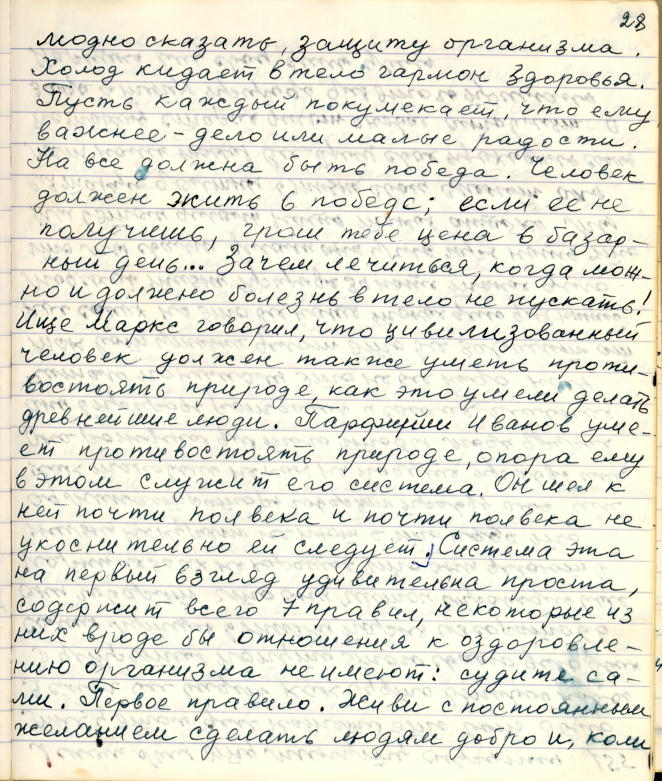 28
модно сказать, защиту организма.
Холод кидает в тело гармон здоровья.
Пусть каждый покумекает, что ему
важнее – дело или малые радости.
На все должна быть победа. Человек
должен жить в победе; если ее не
получишь, грош тебе цена в базар-
ный день... Зачем лечиться, когда мож-
но и должно болезнь в тело не пускать!
Ище Маркс говорил, что цивилизованный
человек должен также уметь проти-
востоять природе, как это умели делать
древнейшие люди. Парфирий Иванов уме-
ет противостоять природе, опора ему
в этом служит его система. Он шел к
ней почти полвека и почти полвека не
укоснительно ей следует. Система эта
на первый взгляд удивительна проста,
содержит всего 7 правил, некоторые из
них вроде бы отношения к оздоровле-
нию организма не имеют: судите са-
ми. Первое правило. Живи с постоянным
желанием сделать людям добро и, коли